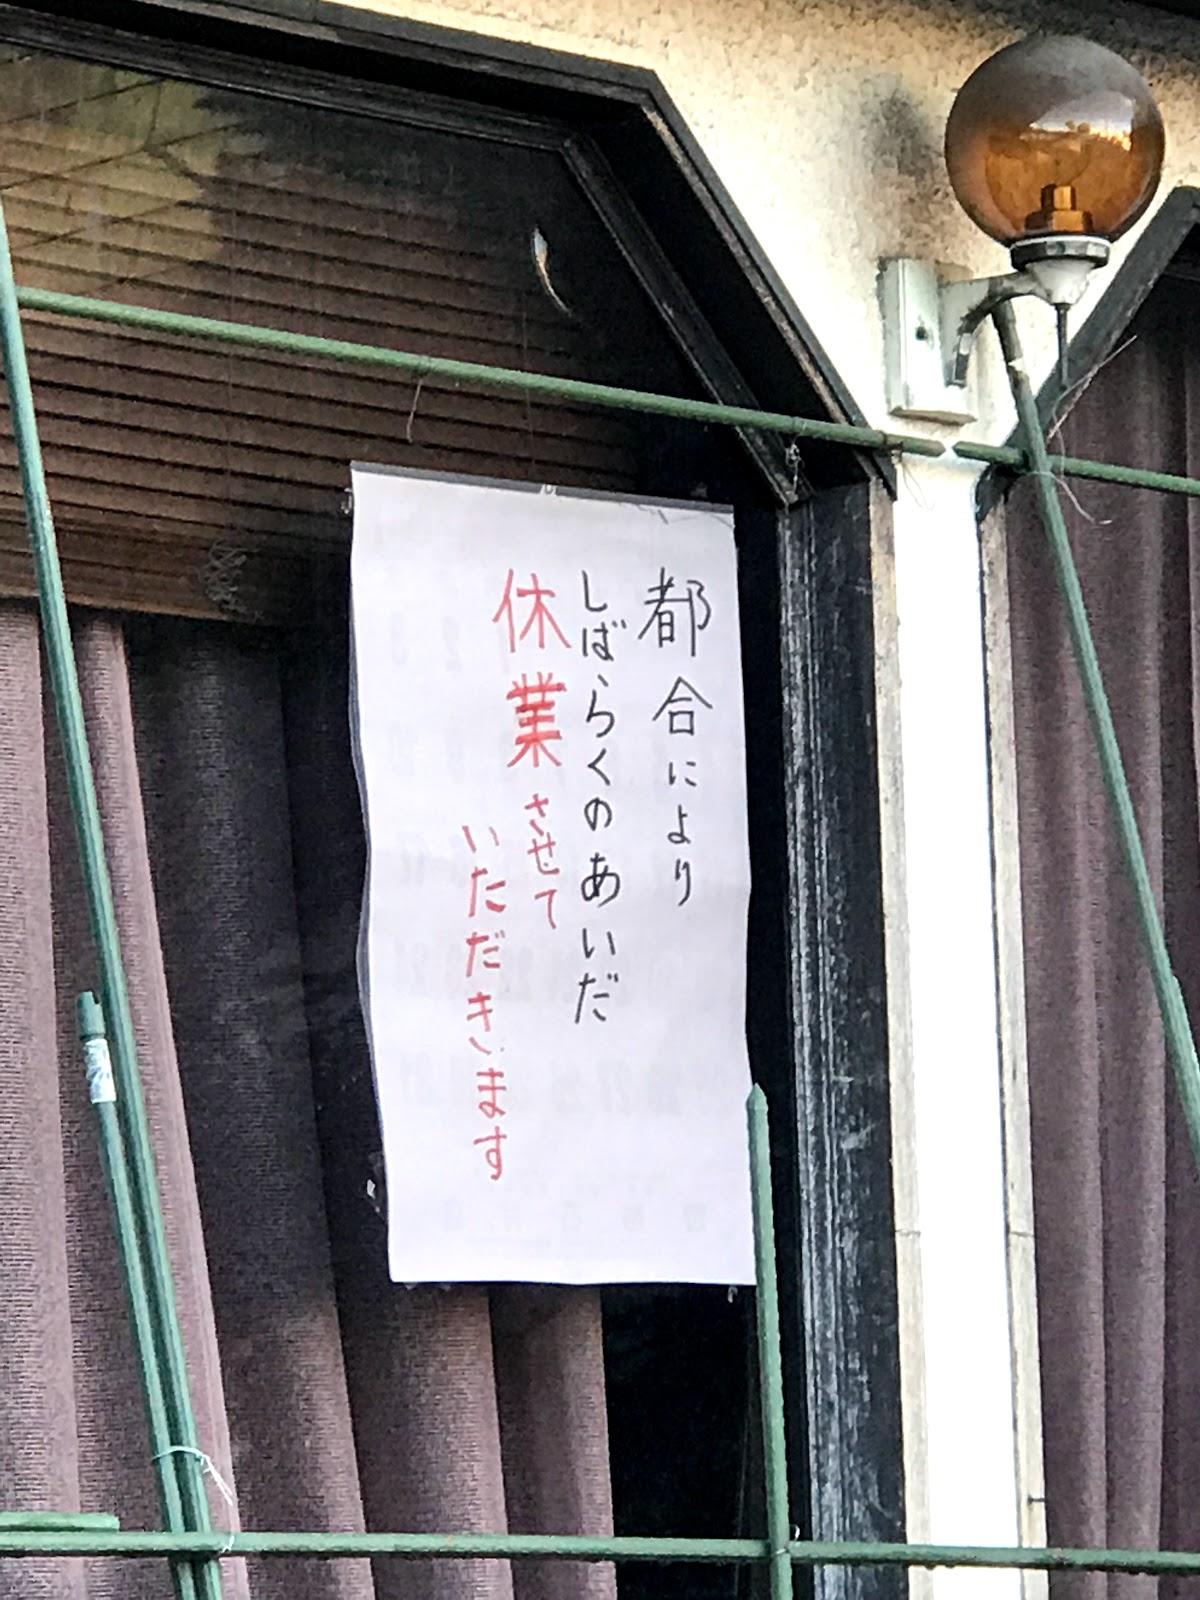 都合により
しばらくのあいだ
休業させて
いただきます